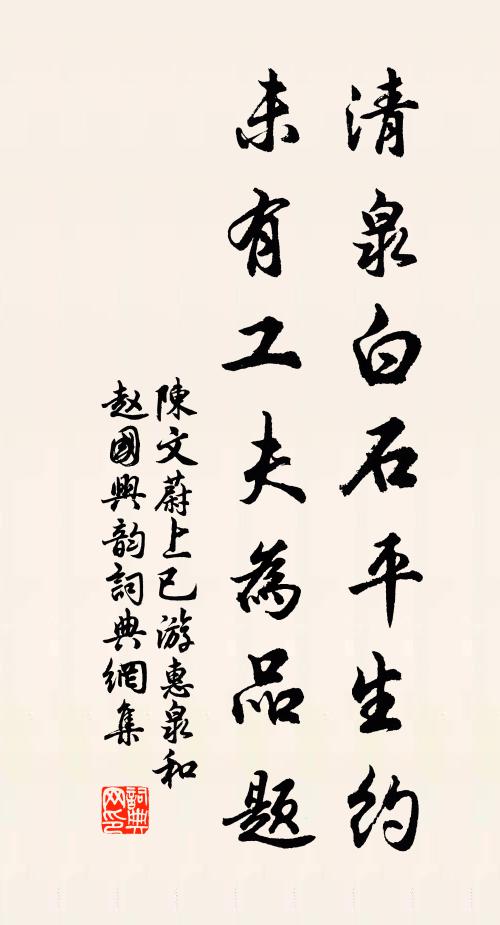 清泉白石平生約
未有工夫為品題
陳文蔚上巳游惠泉和
赵國興韵詞典網集
詞典网印